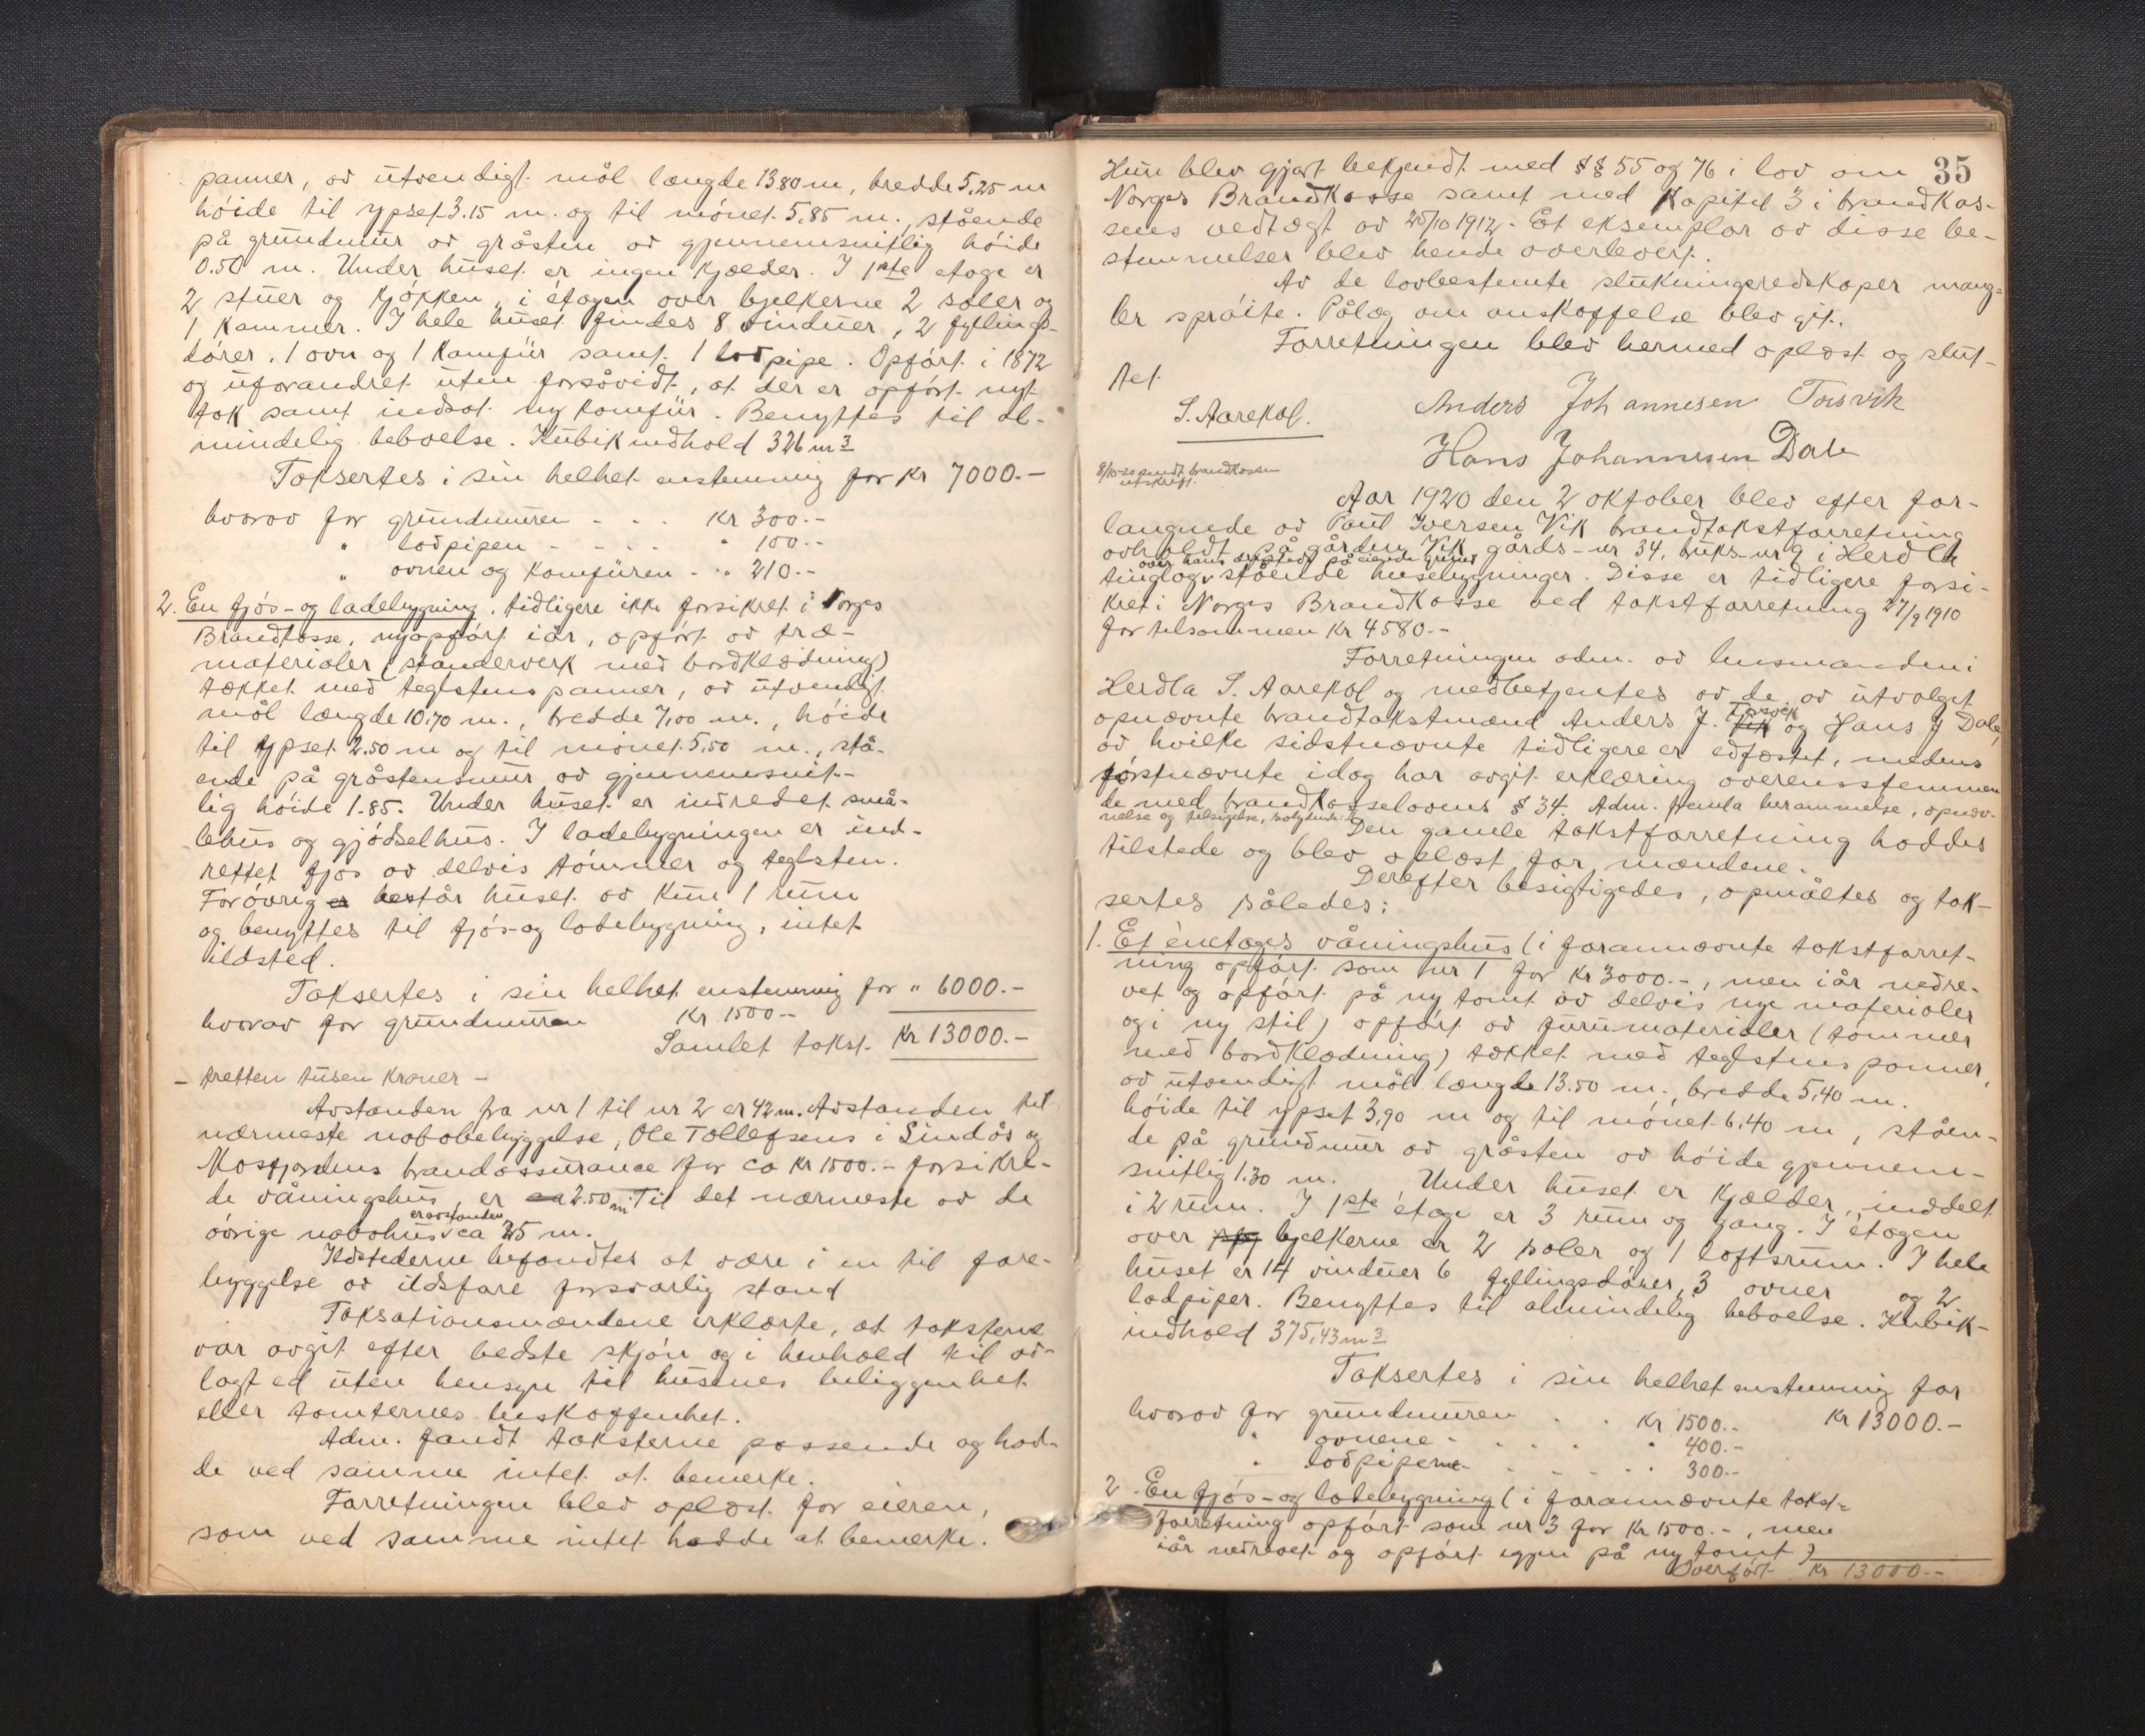 panner, av utvendigt mål længde 13.80 m, bredde 5,25 m
höide til ypset 3.15 m. og til mönet 5.85 m., stående
på grundmur av gråsten av gjennemsnitlig höide
0.50 m. Under huset er ingen kjælder. I 1ste etage er
2 stuer og kjökken, i étagen over bjelkerne 2 saler og
1 kammer. I hele huset findes 8 vinduer, 2 fyllings-
dörer, 1 ovn og 1 kamfür samt 1 lodpipe. Opfört i 1872
og uforandret uten forsåvidt, at der er opfört nyt
tak samt indsat ny komfür. Benyttes til al-
mindelig beboelse. Kubikindhold 326 m3
Taksertes i sin helhet enstemmig for kr 7000.-
hvorav for grundmuren - . . kr 300.-
" lodpipen - - - . " 100.-
" ovnen og komfüren - . " 210.-
2. En fjös- og ladebygning, tidligere ikke forsikret i Norges
Brandkasse, nyopfört iår, opfört av træ-
materialer (standerverk med bordklædning)
tækket med teglstens panner, av utvendigt
mål længde 10,70 m., bredde 7,00 m., höide
til ypset 2.50 m og til mönet 5,50 m., stå-
ende på gråstensmur av gjennemsnit-
lig höide 1.85. Under huset er indredet små-
lehus og gjödselhus. I ladebygningen er ind-
rettet fjös av delvis tömmer og teglsten.
Forövrig er består huset av kun 1 rum
og benyttes til fjös- og ladebygning, intet
ildsted.
Taksertes i sin helhet enstemmig for " 6000.-
hvorav for grundmuren kr 1500.-
Samlet takst kr 13000.-
- tretten tusen kroner -
Avstanden fra nr 1 til nr 2 er 42 m. Avstanden til
nærmeste nabobebyggelse, Ole Tollefsens i Lindås og
Masfjordens brandassurance for ca kr 1500.- forsikre-
de våningshus, er ca 2.50 m. Til det nærmeste av de
övrige nabohus er avstanden ca 25 m.
Ildstederne befandtes at være i en til fore-
byggelse av ildsfare forsvarlig stand
Taksationsmændene erklærte, at taksterne
var avgit efter bedste skjön og i henhold til av-
lagt ed uten hensyn til husenes beliggenhet
eller tomternes beskaffenhet.
Adm. fandt taksterne passende og had-
de ved samme intet at bemerke.
Forretningen blev oplæst for eieren,
som ved samme intet hadde at bemerke.
35
Hun blev gjort bekjendt med §§ 55 og 76 i lov om
Norges Brandkasse samt med Kapitel 3 i brandkas-
sens vedtægt av 25/10 1912. Et eksemplar av disse be-
stemmelser blev hende overlevert.
Av de lovbestemte slukningsredskaper mang-
ler spröite. Pålæg om anskaffelse blev git.
Forretningen blev hermed oplæst og slut-
tet.
S. Aarekol. Anders Johannesen Tosvik
Hans Johannesen Dale
8/10-20 sendt brandkassen
utskrift.
Aar 1920 den 2 oktober blev efter for-
langende av Paul Iversen Vik brandtakstforretning
avholdt på gården Vik gårds-nr 34, bruks-nr 9 i Herdla
over hans derstedt på eiende grund
tinglag, stående husebygninger. Disse er tidligere forsi-
kret i Norges Brandkasse ved takstforretning 27/9 1910
for tilsammen kr 4580.-
Forretningen adm. av lensmanden i
Herdla S. Aarekol og medbetjentes av de av utvalget
opnævnte brandtakstmænd Anders J. Vik Tosvik og Hans J Dale,
av hvilke sidstnævnte tidligere er edfæstet, medens
förstnævnte idag har avgit erklæring overensstemmen
de med brandkasselovens § 34. Adm. fremla berammelse, opnæv-
nelse og tilsigelse,
Den gamle takstforretning haddes
tilstede og blev oplæst for mændene.
Derefter besigtigedes, opmåltes og tak-
sertes således:
1. Et énetages våningshus (i forannævnte takstforret-
ning opfört som nr 1 for kr 3000.-, men iår nedre-
vet og opfört på ny tomt av delvis nye materialer
og i ny stil) opfört av furumaterialer (tömmer
med bordklædning) tækket med teglstens panner,
av utvendigt mål længde 13.50 m., bredde 5,40 m.
höide til ypset 3,90 m og til mönet 6,40 m, ståen-
de på grundmur av gråsten av höide gjennem-
snitlig 1.30 m. Under huset er kjælder, inddelt
i 2 rum. I 1ste étage er 3 rum og gang. I étagen
over bjelkerne er 2 saler og 1 loftsrum. I hele
huset er 14 vinduer 6 fyllingsdörer, 3 ovner og 2
lodpiper. Benyttes til almindelig beboelse. Kubik-
indhold 375,43 m3
Taksertes i sin helhet enstemmig for
kr 13000.-
hvorav for grundmuren . . kr 1500.-
" ovnene - . . . " 400.-
" lodpiperne . . . . " 300.-
2. En fjös- og ladebygning (i forannævnte takst-
forretning opfört som nr 3 for kr 1500.-, men
iår nedrevet og opfört igjen på ny tomt)
Overfört kr 13000.-